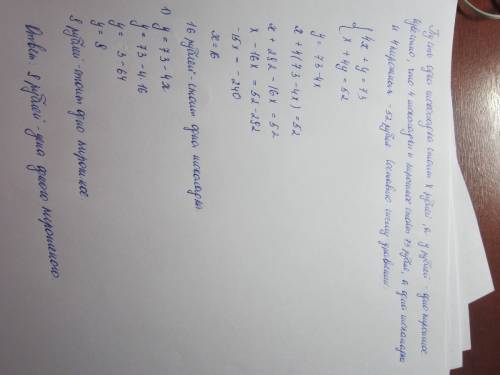 Пусть одна шоколадка стоит x рублей, а y рублей - одно пирожное
известно, что 4 шоколадки и пирожное стоят 73 рубля, а одна шоколадка
и 4 пирожных - 52 рубля. Составлю систему уравнений
{ 4x + y = 73
x + 4y = 52
y = 73-4x
x + 4(73-4x) = 52
x + 292 - 16x = 52
x - 16x = 52-292
-15x = -240
x=16
16 рублей - стоит одна шоколадка
1) y = 73 - 4x
y = 73 - 4·16
y = 73 - 64
y = 8
8 рублей - стоит одно пирожное
Ответ: 8 рублей - цена одного пирожного.